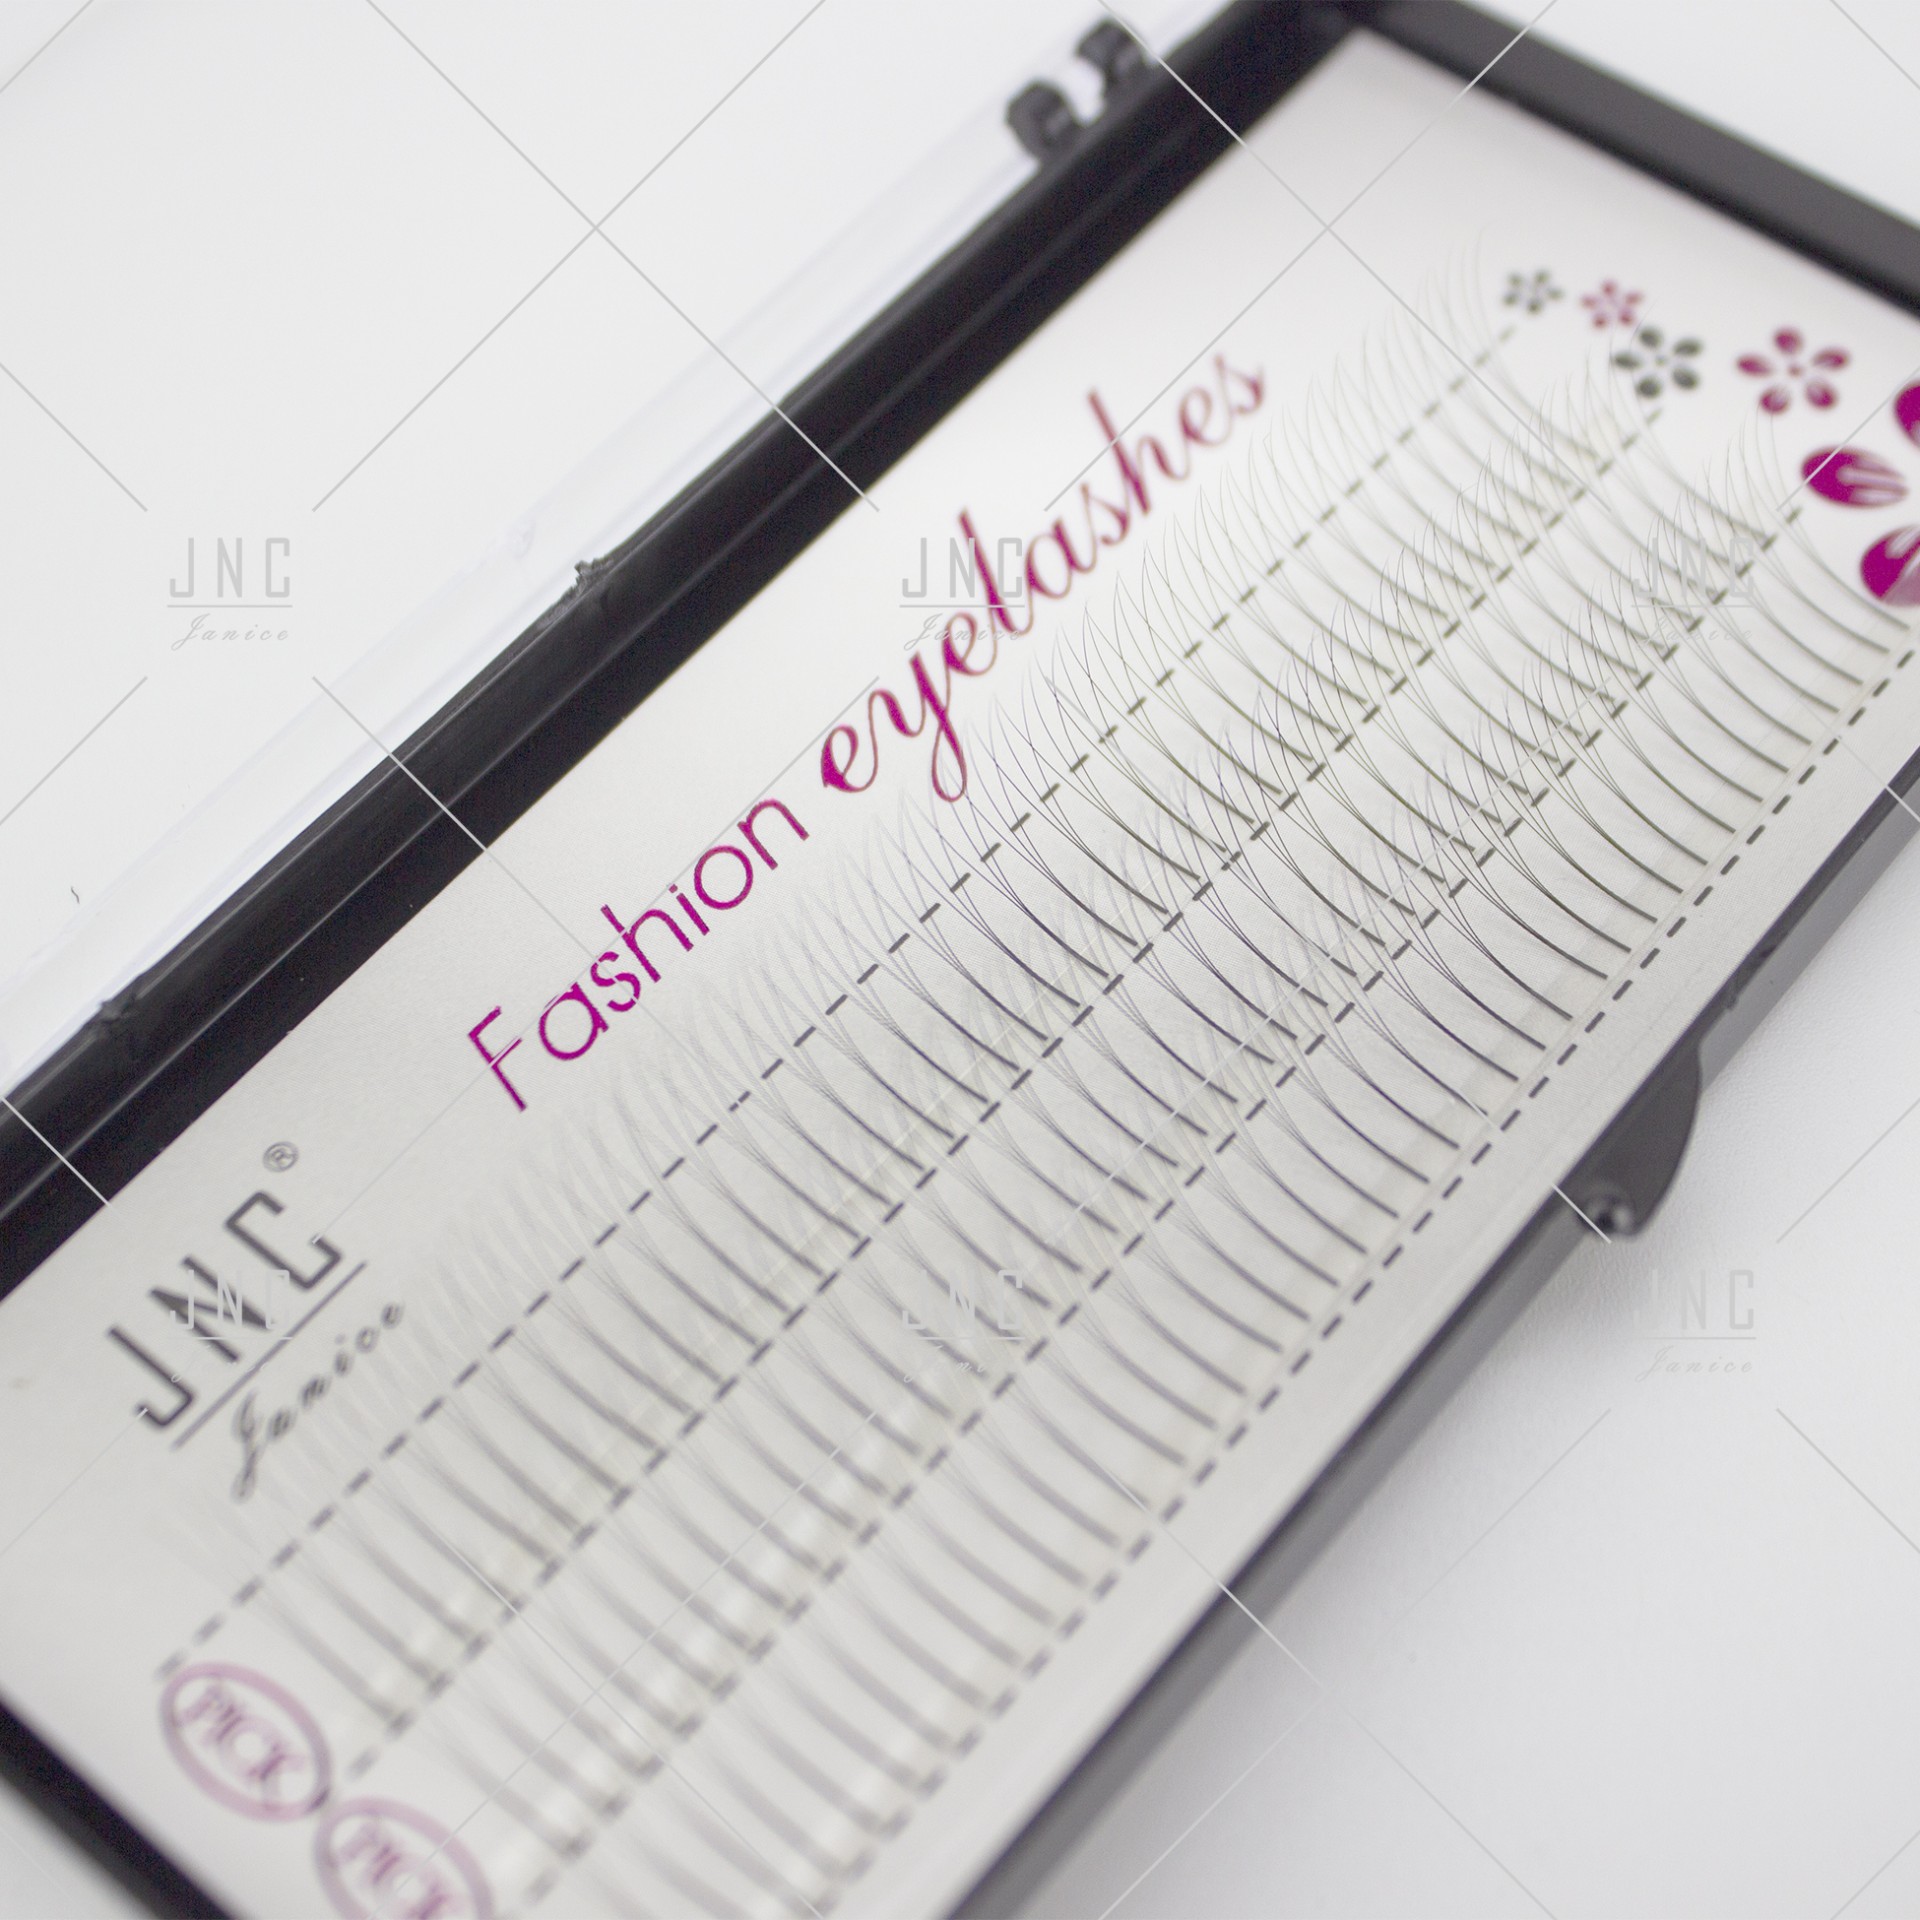 Fashion eyelashes
JNC®
Janice
PICK
PICK
JNC
Janice
JNC
Janice
JNC
Janice
JNC
Janice
JNC
Janice
JNC
Janice